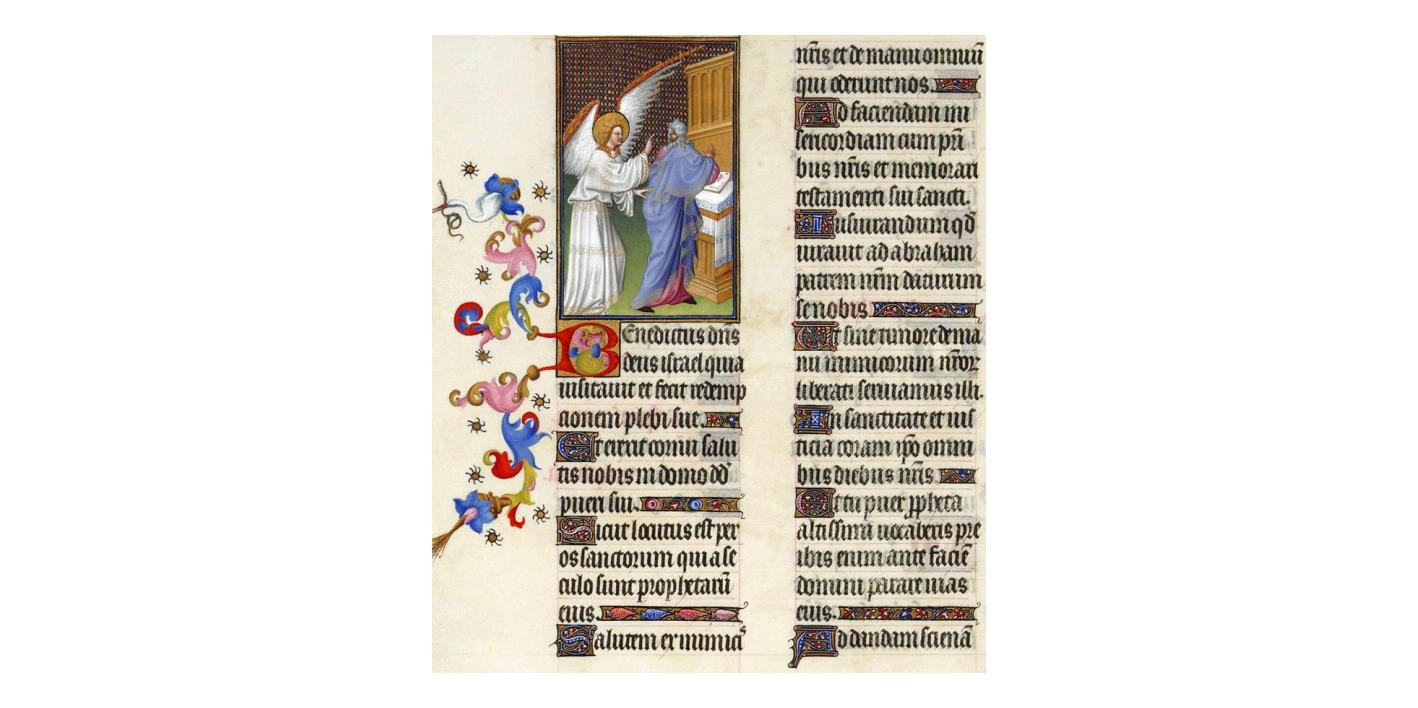 Benedictus dñs
deus israel quia
uisitauit et fecit redemp
cionem plebi sue.
Et erexit cornu salu
tis nobis in domo dd̄
pueri sui.
Sicut locutus est per
os sanctorum qui a se
culo sunt prophetarū
eius.
Salutem ex inimicˢ
nr̄is et de manu omniū
qui oderunt nos.
Ad faciendam mi
sericordiam cum pr̄i
bus nr̄is et memorari
testamenti sui sancti.
Iusiurandum qd̄
iurauit ad abraham
patrem nr̄m daturum
se nobis
Vt sine timore de ma
nu inimicorum nr̄oꝝ
liberati seruiamus illi.
In sanctitate et ius
ticia coram ip̄o omni
bus diebus nr̄is.
Et tu puer ꝓpheta
altissimi uocaberis pre
ibis enim ante faciē
domini parare uias
eius.
Ad dandam scienā